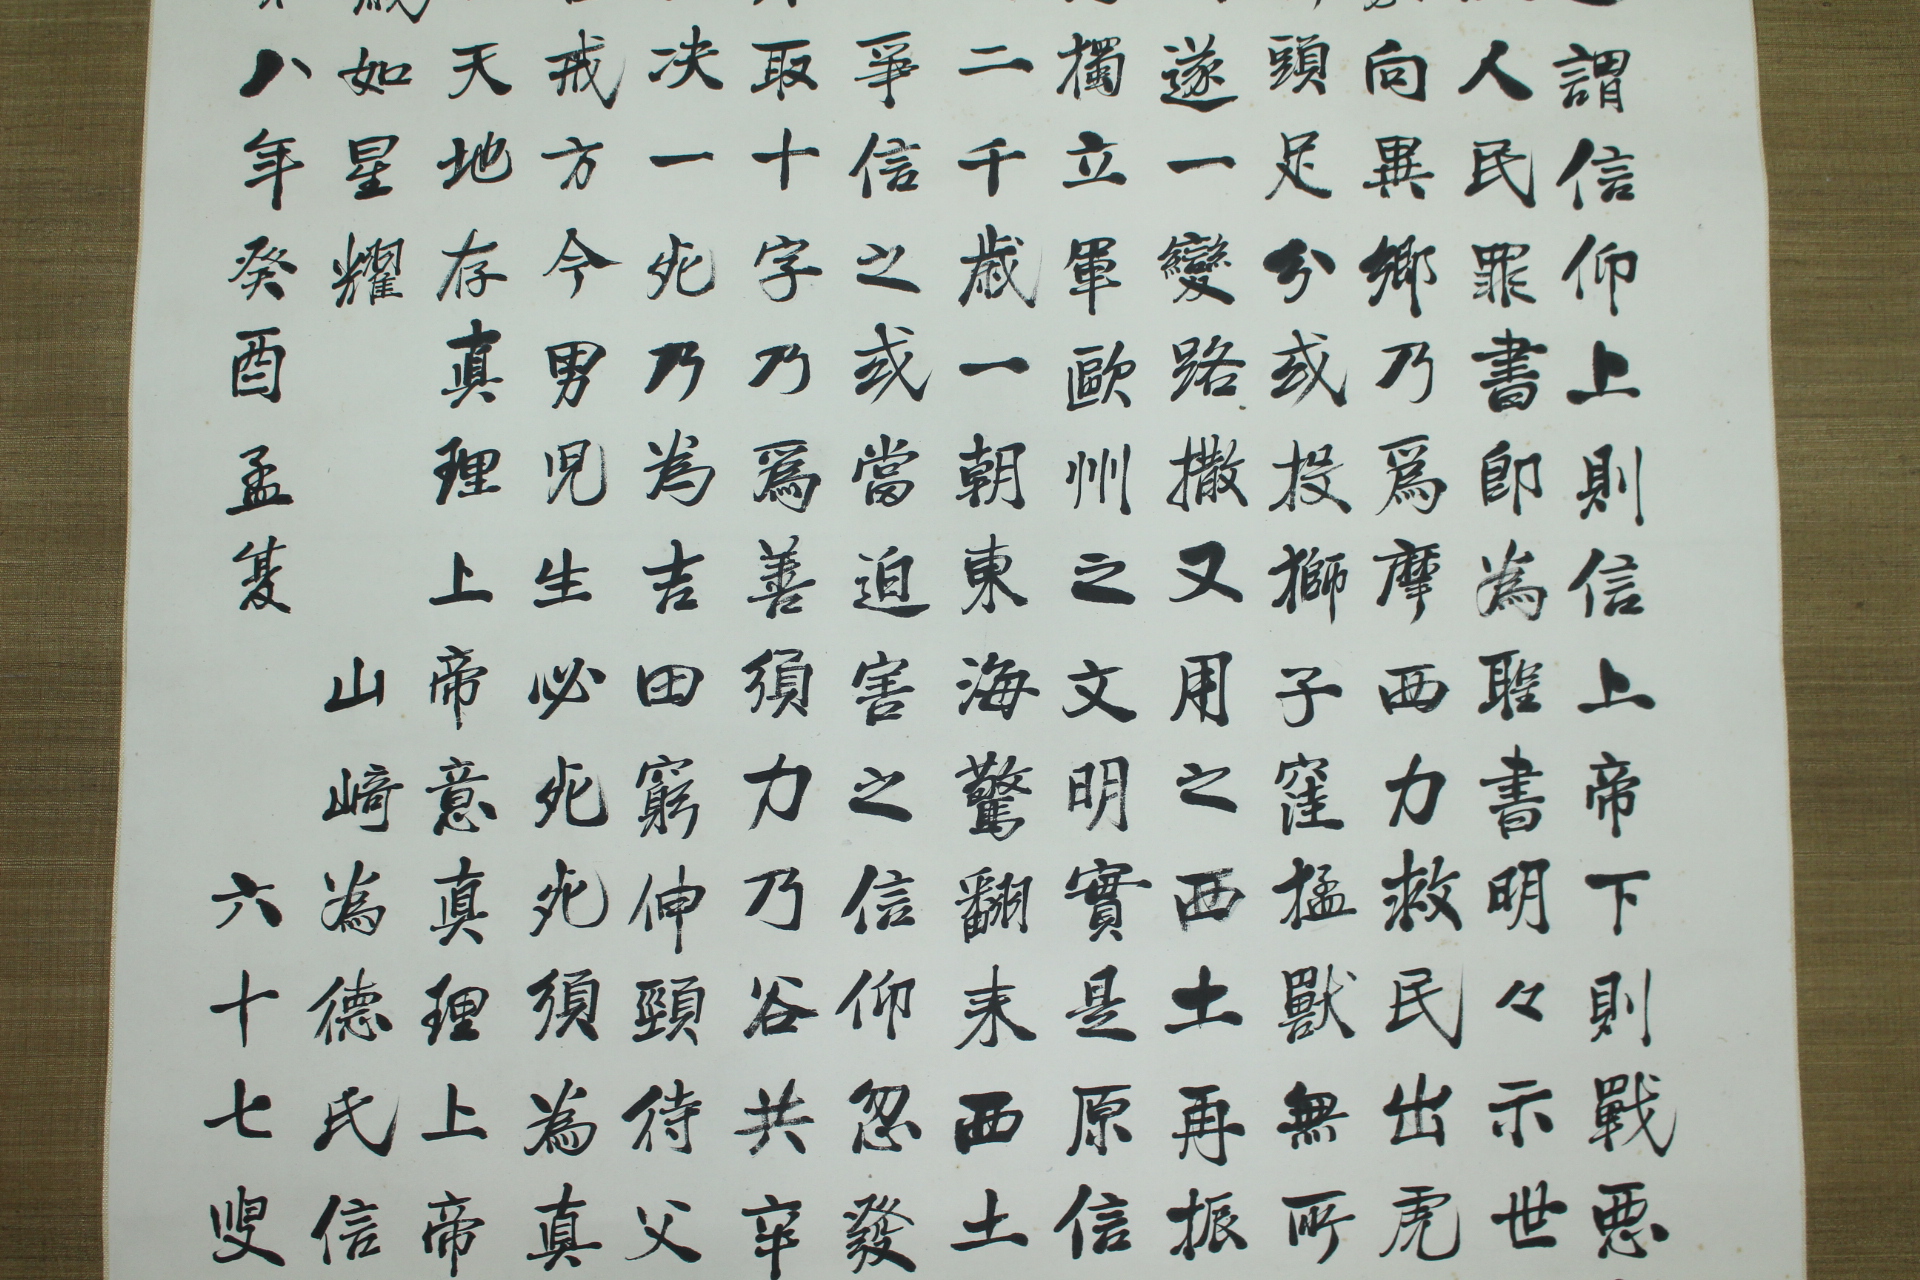 謂信仰上則信上帝下則戰惡
人民罪書即為聖書明々示世
向異鄉乃爲摩西力救民出虎
頭足分或投獅子窪猛獸無所
遂一變路撒又用之西土再振
獨立軍歐州之文明實是原信
二千歲一朝東海驚翻来西土
爭信之或當迫害之信仰忽發
取十字乃爲善須力乃谷共辛
决一死乃為吉田窮伸頸待父
戒方今男児生必死死須為真
天地存真理上帝意真理上帝
如星耀 山﨑為德氏信
八年癸酉孟夏 六十七叟